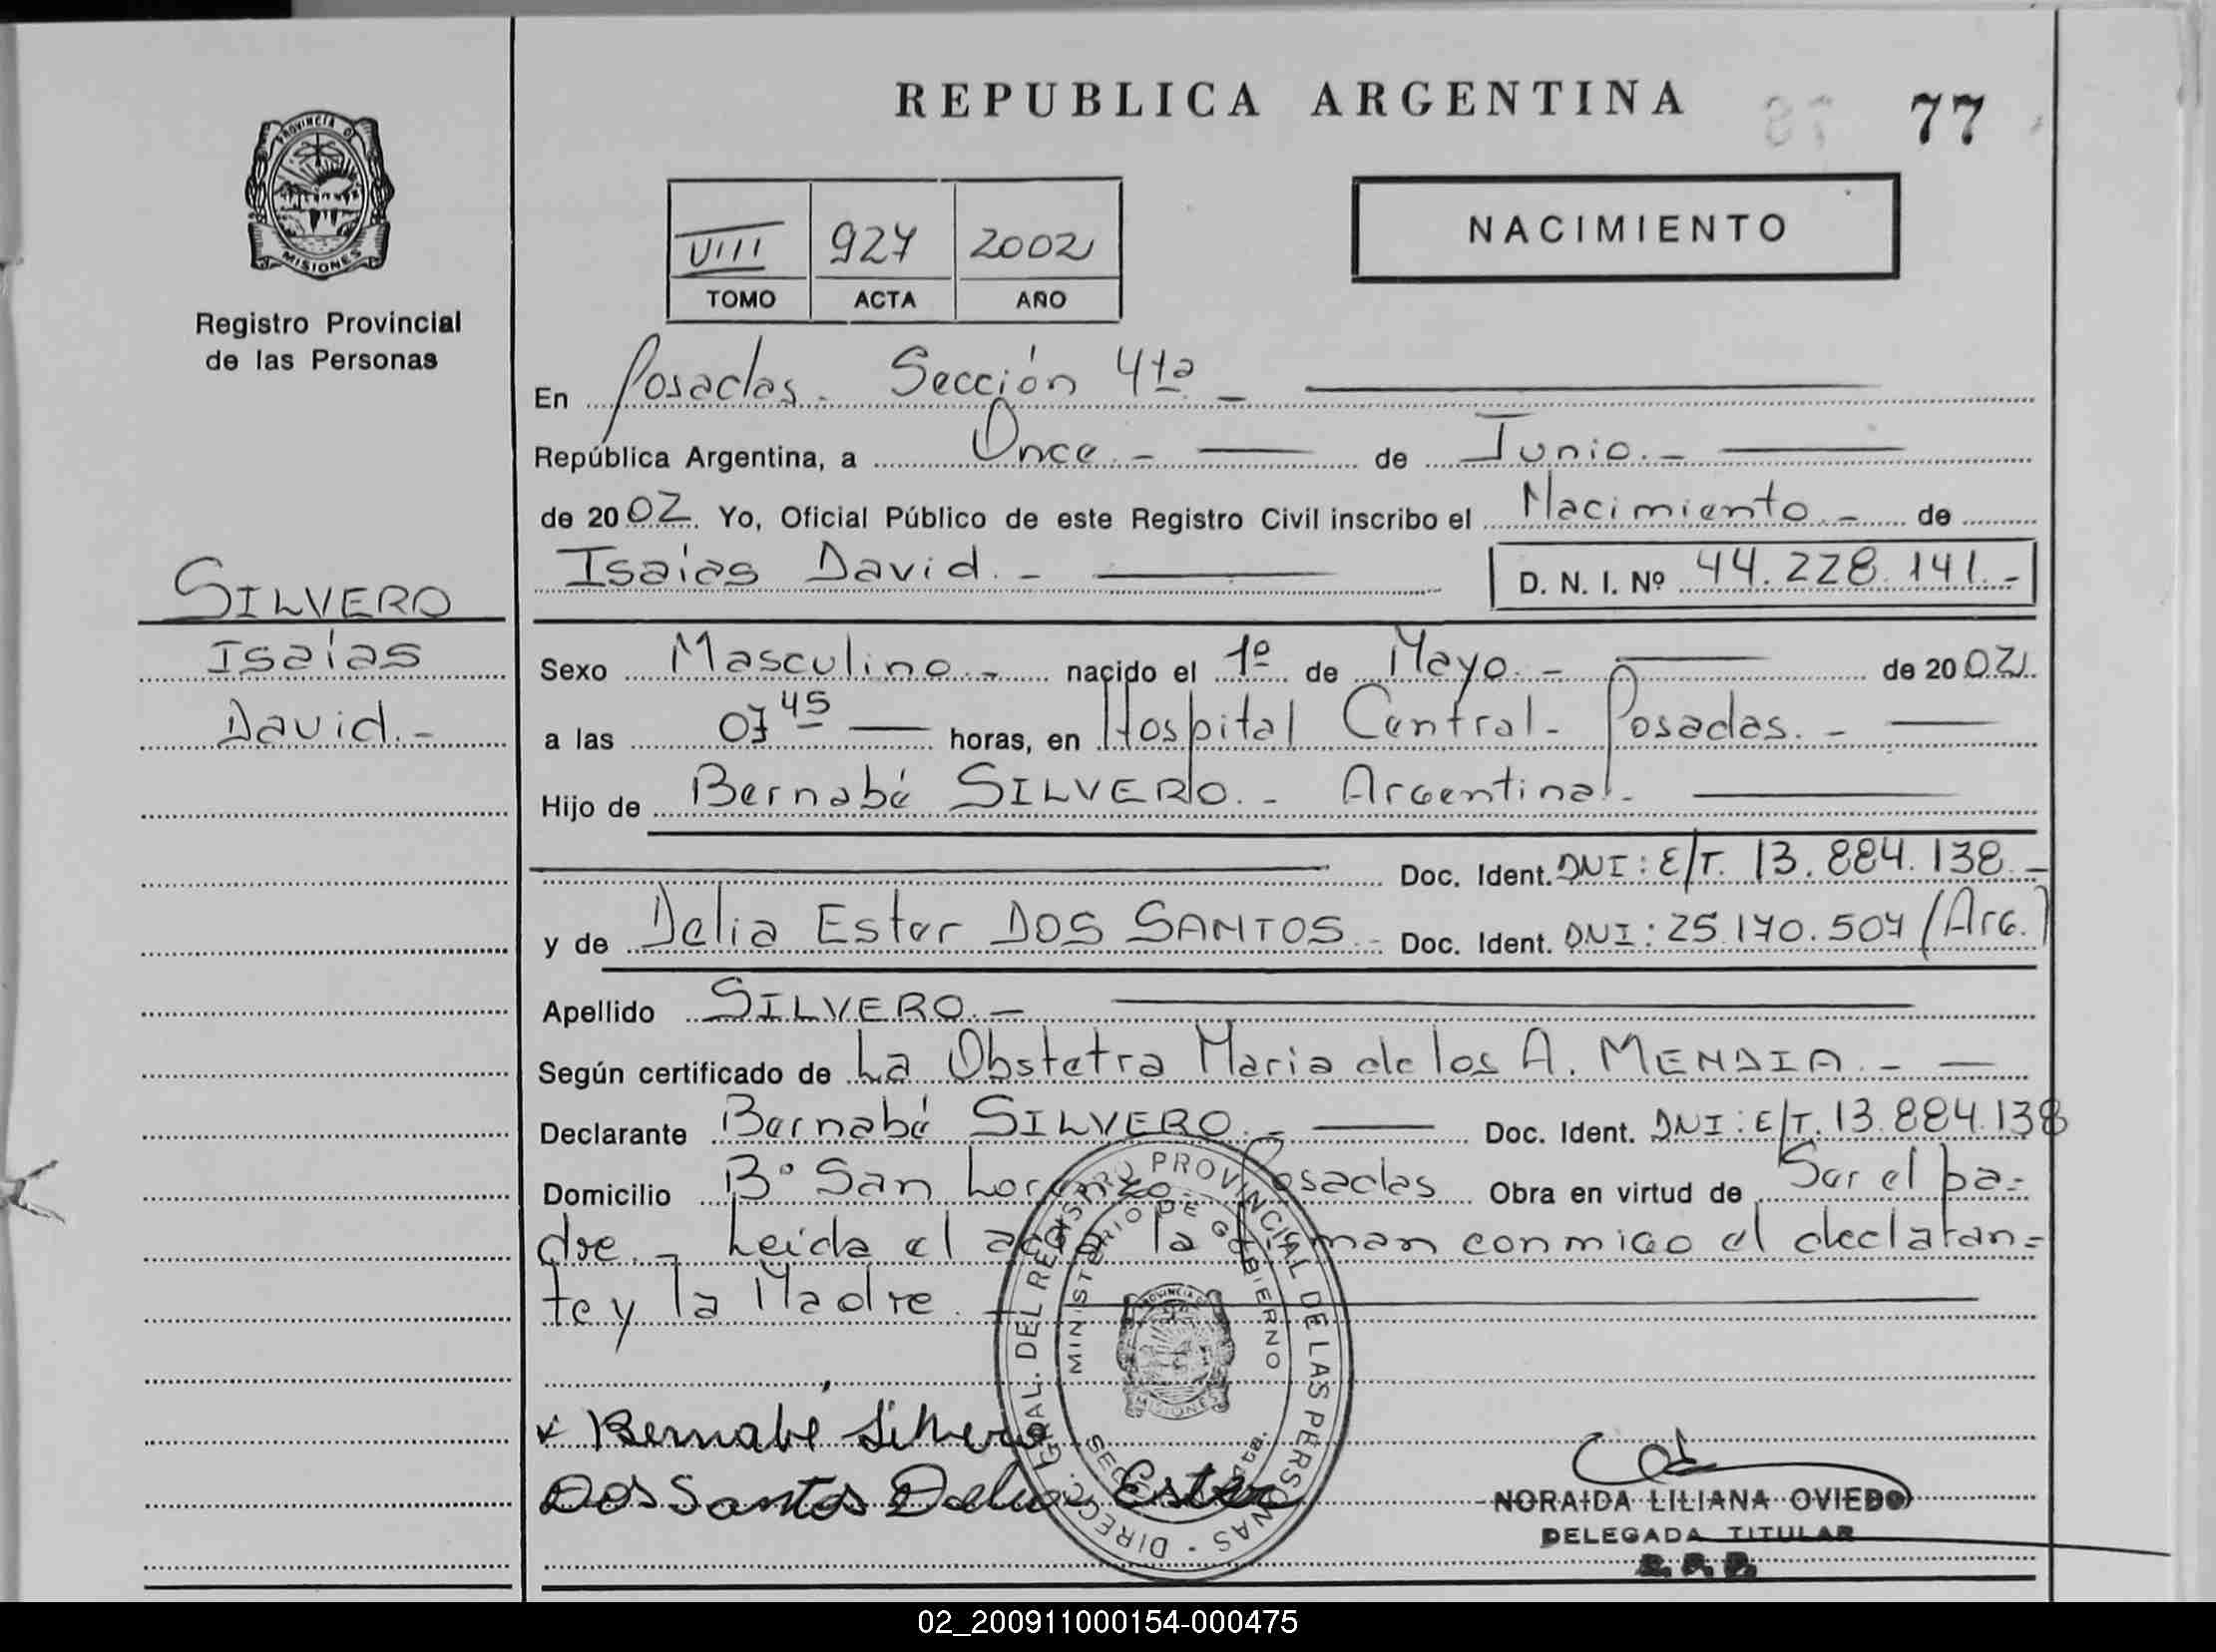 REPUBLICA ARGENTINA
77
PROVINCIA DE
MISIONES
Registro Provincial
de las Personas
VIII 927 2002
TOMO ACTA AÑO
NACIMIENTO
En Posadas. Sección 4ta. -
República Argentina, a Once. - de Junio. -
de 2002. Yo, Oficial Público de este Registro Civil inscribo el Nacimiento. - de
Isaias David. - D. N. I. Nº 44.228.141. -
SILVERO
Isaías
David. -
Sexo Masculino. - nacido el 1º de Mayo. - de 2002.
a las 07 45 horas, en Hospital Central - Posadas. -
Hijo de Bernabé SILVERO. - Argentina. -
Doc. Ident. DNI: E/T. 13.884.138. -
y de Delia Ester DOS SANTOS. - Doc. Ident. DNI: 25.170.507 (Arg.)
Apellido SILVERO. -
Según certificado de La Obstetra Maria de los A. MENDIA. -
Declarante Bernabé SILVERO. - Doc. Ident. DNI: E/T. 13.884.138
Domicilio Bº San Lorenzo. Posadas Obra en virtud de Ser el pa=
dre. - Leida el acta la firman conmigo el declaran=
te y la Madre. -
x Bernabé Silvero
Dos Santos Delia Ester
DIRECC. GRAL. DEL REGISTRO PROVINCIAL DE LAS PERSONAS -
MINISTERIO DE GOBIERNO
PROVINCIA DE
MISIONES
4ta.
NORAIDA LILIANA OVIEDO
DELEGADA TITULAR
R. P. P.
02_200911000154-000475